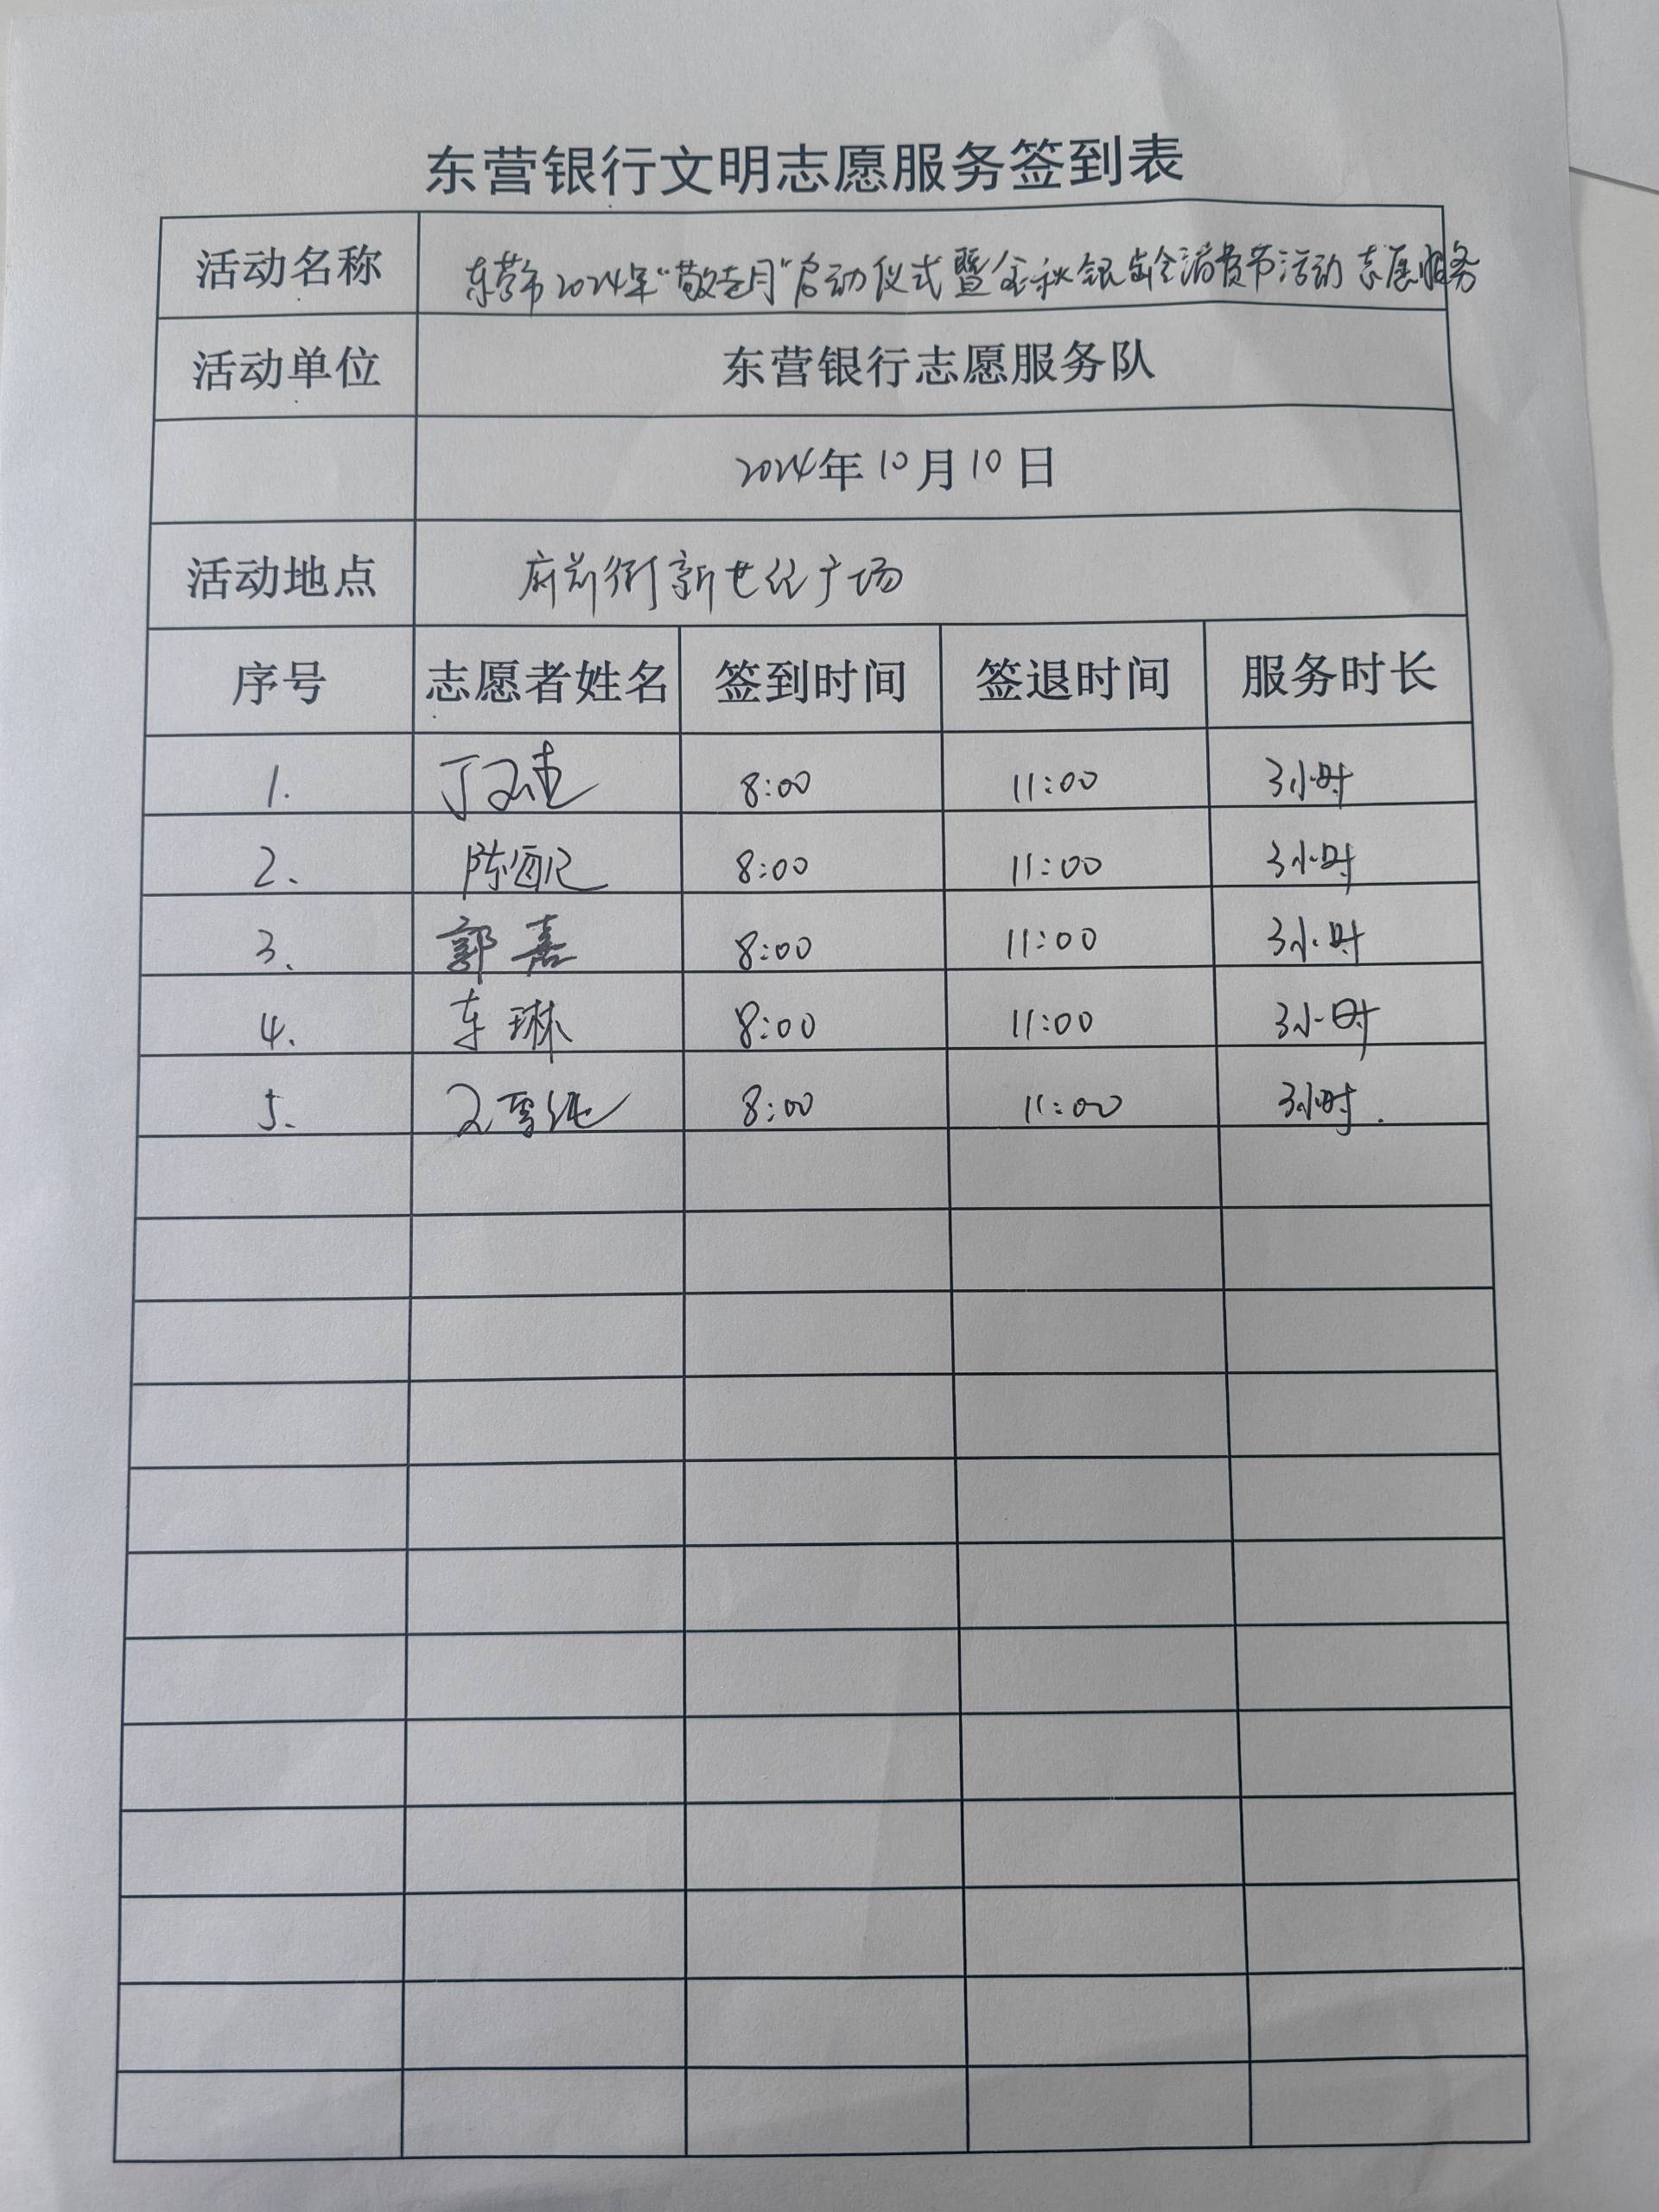 东营银行文明志愿服务签到表
活动名称 东营市2024年“敬老月”启动仪式暨金秋银龄消费节活动志愿服务
活动单位 东营银行志愿服务队
2024年10月10日
活动地点 府前街新世纪广场
序号 志愿者姓名 签到时间 签退时间 服务时长
1. 丁 8:00 11:00 3小时
2、 陈 8:00 11:00 3小时
3、 郭嘉 8:00 11:00 3小时
4. 车琳 8:00 11:00 3小时
5. 8:00 11:00 3小时.